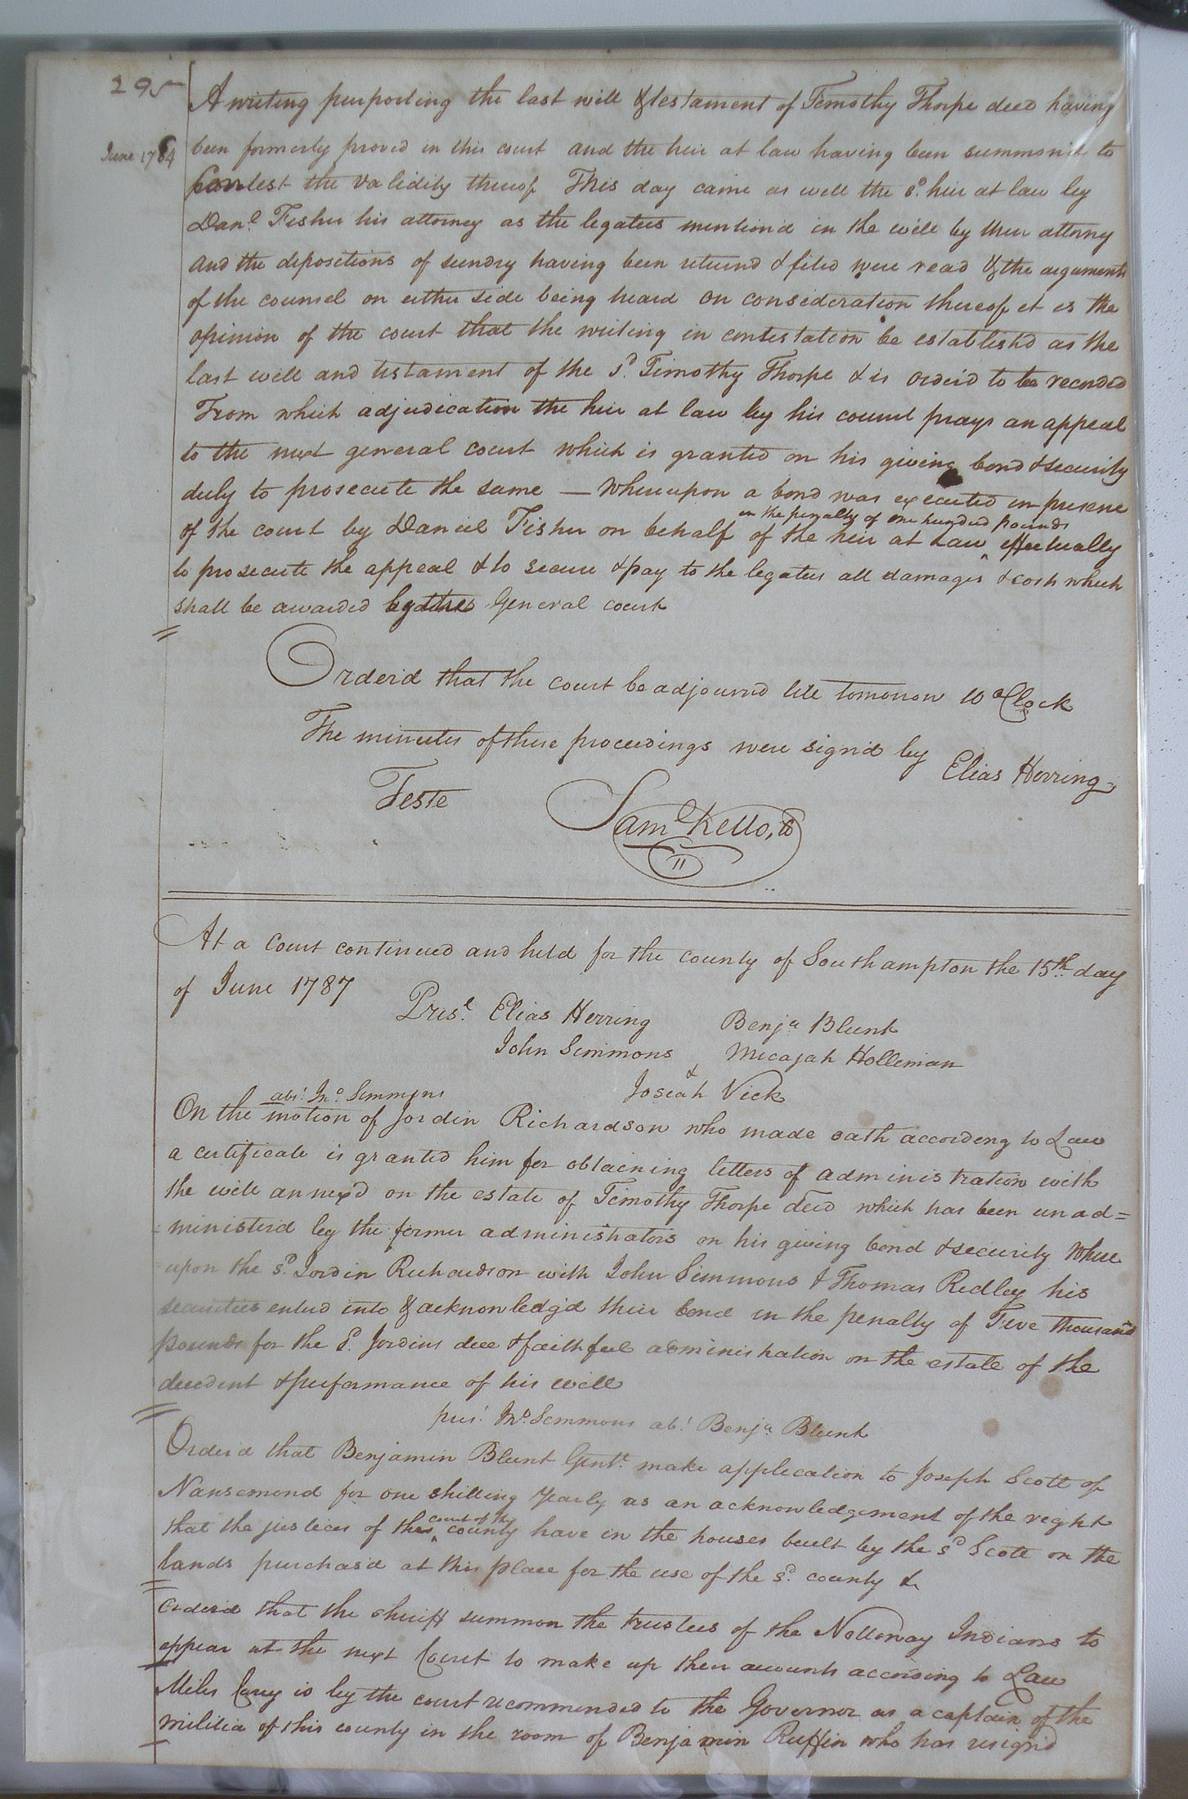 295
June 1784
A writing purporting the last will & testament of Timothy Thorpe decd having
been formerly proved in this court and the heir at law having been summon'd to
contest the validity thereof This day came as well the sd. heir at law by
Danl. Fisher his attorney as the legatees mention'd in the will by their attorney
And the depositions of sundry having been returnd & filed were read & the arguments
of the counsel on either side being heard on consideration thereof it is the
opinion of the court that the writing in contestation be establish'd as the
last will and testament of the sd. Timothy Thorpe & is order'd to be recorded
From which adjudication the heir at law by his council prays an appeal
to the next general court which is granted on his giving bond & security
duly to prosecute the same — Whereupon a bond was executed in presence
of the court by Daniel Fisher on behalf of the heir at Law ^ effectually
in the penalty of one hundred Pounds
to prosecute the appeal & to secure & pay to the legatees all damages & costs which
shall be awarded by the General court
Orderid that the court be adjourned till tomorrow 10 oClock
The minutes of these proceedings were signd by Elias Herring
Teste
Saml. Kello, Ck
At a Court continued and held for the county of Southampton the 15th. day
of June 1787
Prest. Elias Herring Benja Blunt
John Simmons Micajah Holleman
& Josiah Vick
abst. Jno. Simmons
On the motion of Jordin Richardson who made oath according to Law
a certificate is granted him for obtaining letters of administration with
the will annex'd on the estate of Timothy Thorpe decd which has been unad=
ministerd by the former administrators on his giving bond & security Where
upon the sd. Jordin Richardson with John Simmons & Thomas Ridley his
securities enterd into & acknowledg'd their bond in the penalty of Five thousand
pounds for the sd. Jordins due & faithful administration on the estate of the
decedent & performance of his will
prest. Jno. Simmons abt. Benja Blunt
Order'd that Benjamin Blunt Gent. make application to Joseph Scott of
Nansemond for one shilling Yearly as an acknowledgement of the right
that the justices of the ^ county have in the houses built by the sd Scott on the
court of this
lands purchas'd at this place for the use of the sd. county &
Orderd that the sheriff summon the trustees of the Nottoway Indians to
appear at the next Court to make up their accounts according to Law
Miles Cary is by the court recommended to the Governor as a captain of the
militia of this county in the room of Benjamin Ruffin who has resign'd